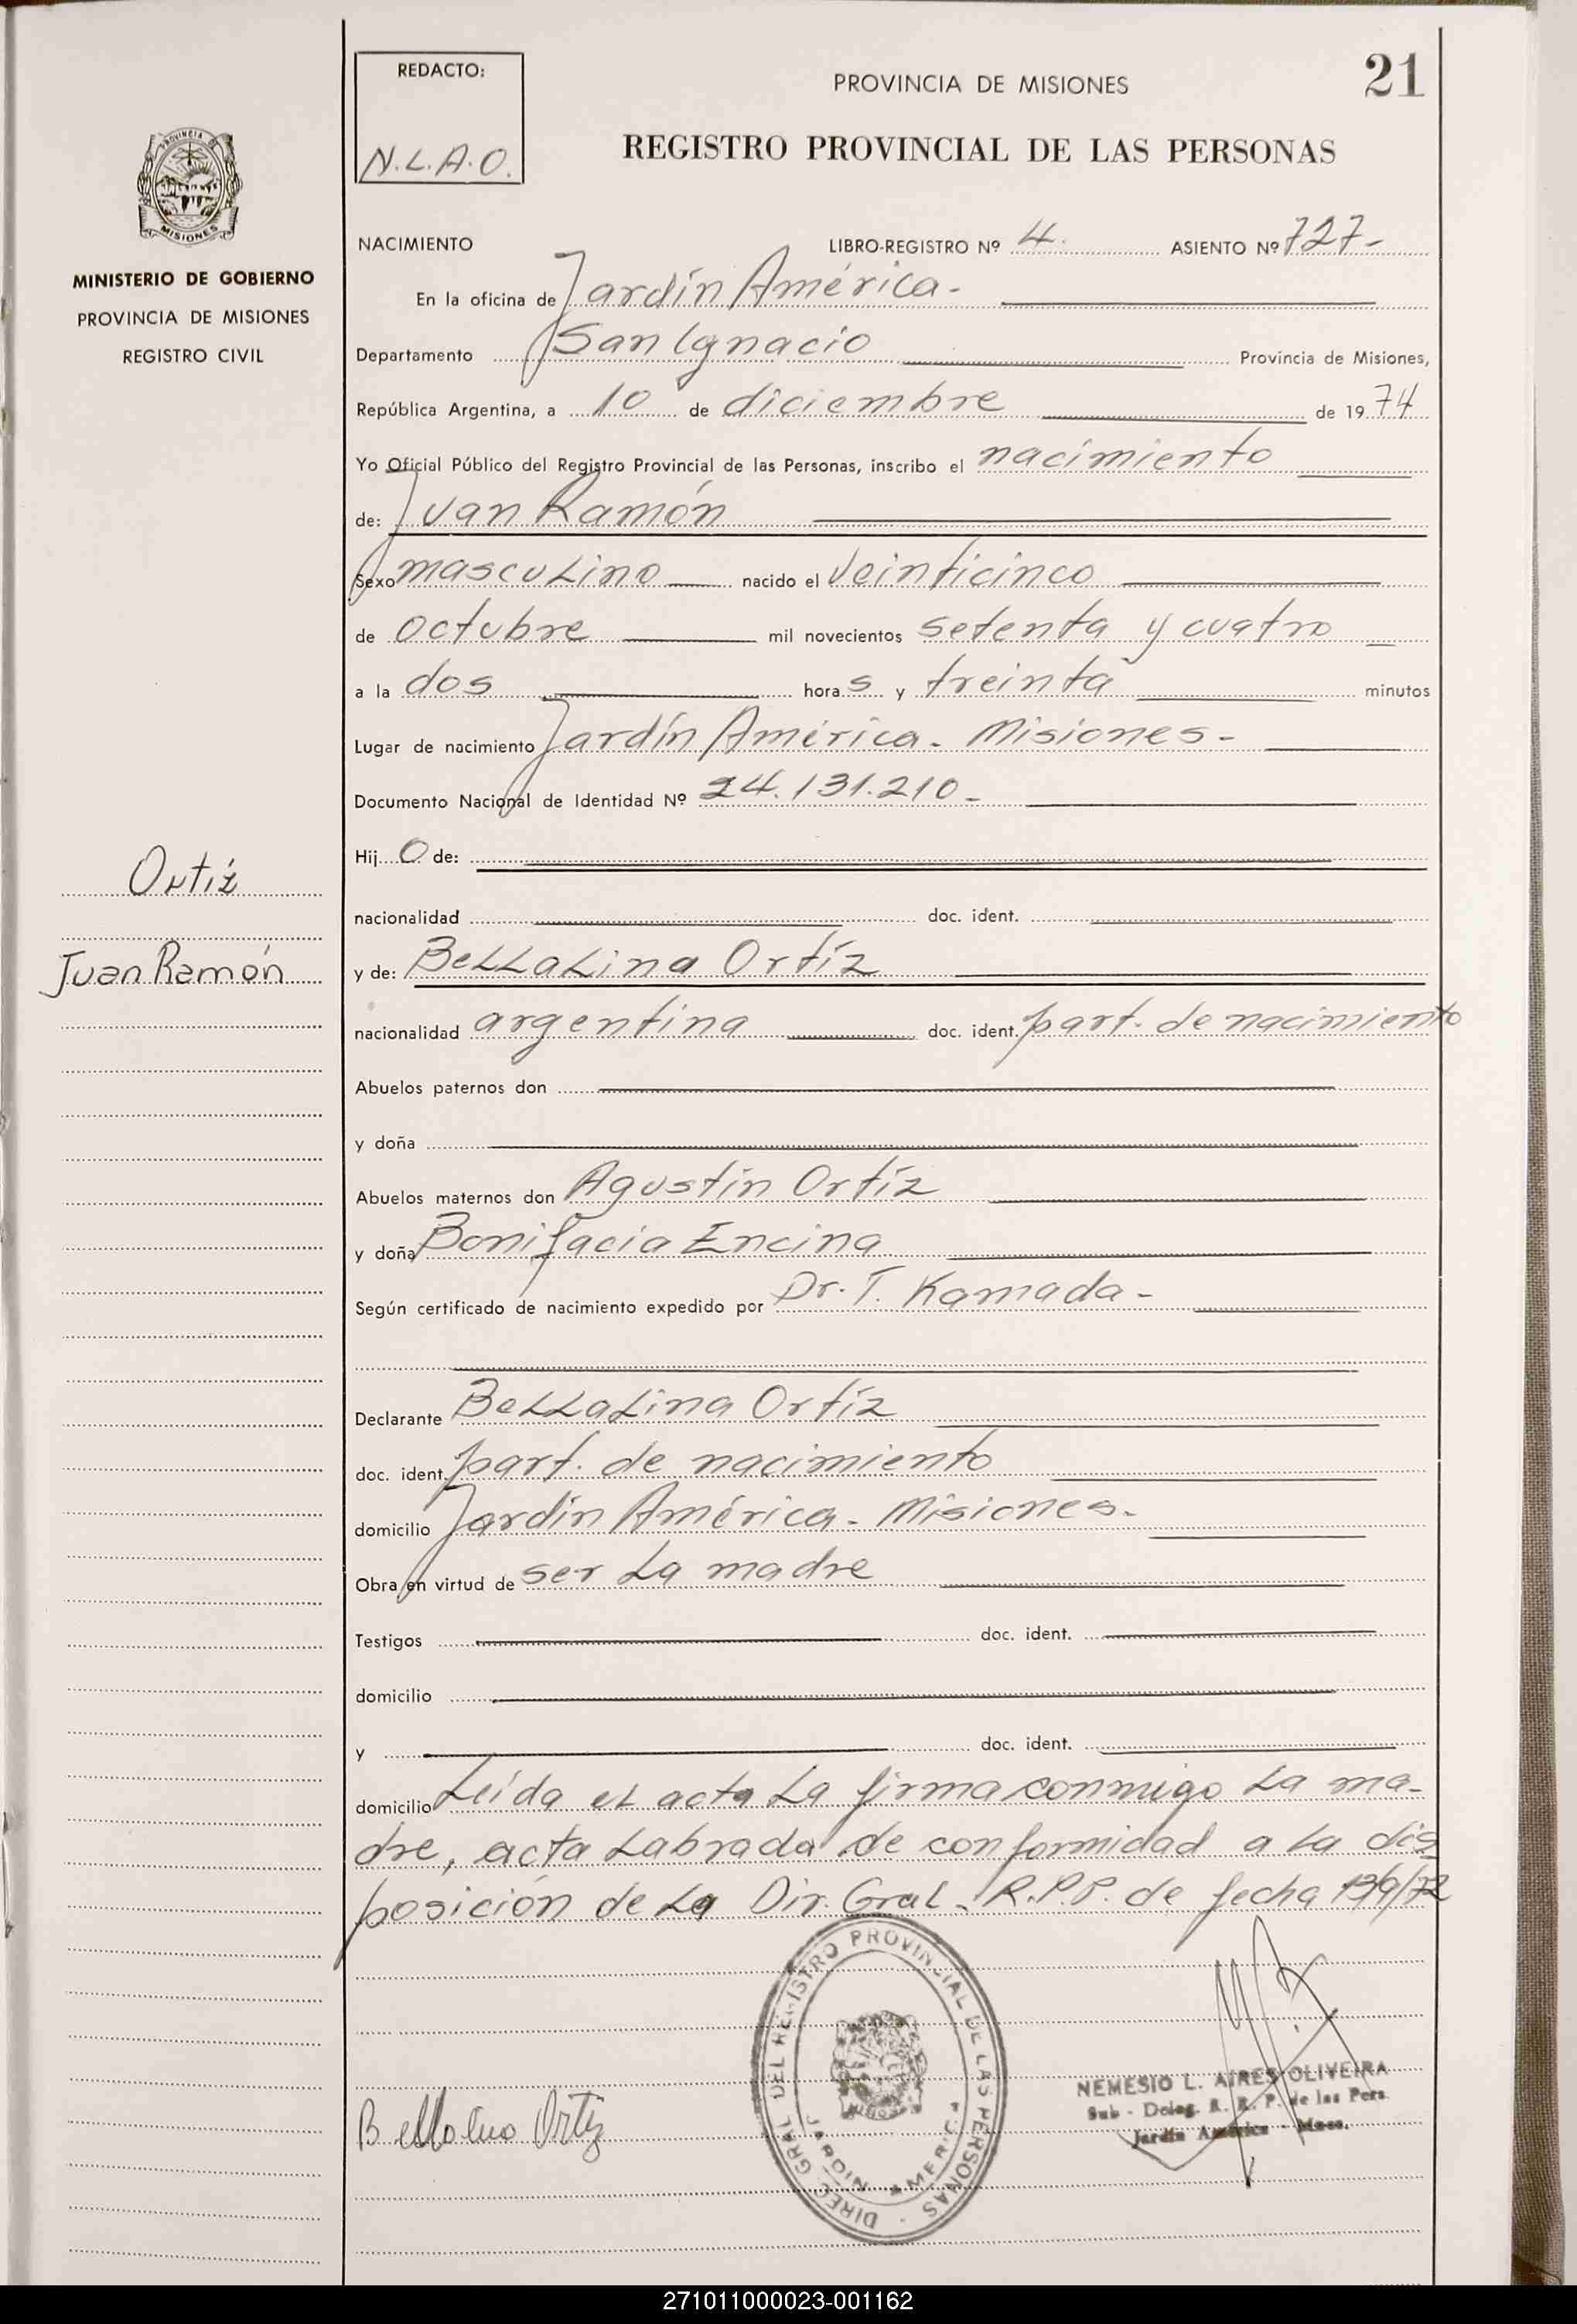 REDACTO:
N.L.A.O.
PROVINCIA DE MISIONES
21
REGISTRO PROVINCIAL DE LAS PERSONAS
PROVINCIA DE
MISIONES
MINISTERIO DE GOBIERNO
PROVINCIA DE MISIONES
REGISTRO CIVIL
NACIMIENTO LIBRO-REGISTRO Nº 4. ASIENTO Nº 727-
En la oficina de Jardín América-
Departamento San Ignacio Provincia de Misiones,
República Argentina, a 10 de diciembre de 1974
Yo Oficial Público del Registro Provincial de las Personas, inscribo el nacimiento
de: Juan Ramón
Sexo masculino nacido el veinticinco
de octubre mil novecientos setenta y cuatro
a la dos horas y treinta minutos
Lugar de nacimiento Jardín América. Misiones-
Documento Nacional de Identidad Nº 24.131.210-
Hijo de:
nacionalidad doc. ident.
Ortiz
Juan Ramón
y de: Bellalina Ortíz
nacionalidad argentina doc. ident. part. de nacimiento
Abuelos paternos don
y doña
Abuelos maternos don Agustín Ortíz
y doña Bonifacia Encina
Según certificado de nacimiento expedido por Dr. T. Kamada-
Declarante Bellalina Ortíz
doc. ident. part. de nacimiento
domicilio Jardín América. Misiones-
Obra en virtud de ser la madre
Testigos doc. ident.
domicilio
y doc. ident.
domicilio Leída el acta la firma conmigo la ma-
dre, acta labrada de conformidad a la dis
posición de la Dir. Gral. R.P.P. de fecha
DIREC. GRAL. DEL REGISTRO PROVINCIAL DE LAS PERSONAS
JARDIN AMERICA
NEMESIO L. AIRES OLIVEIRA
Sub - Deleg. R. R. P. de las Pers.
Jardín América - Mnes.
Bellalina Ortiz
271011000023-001162